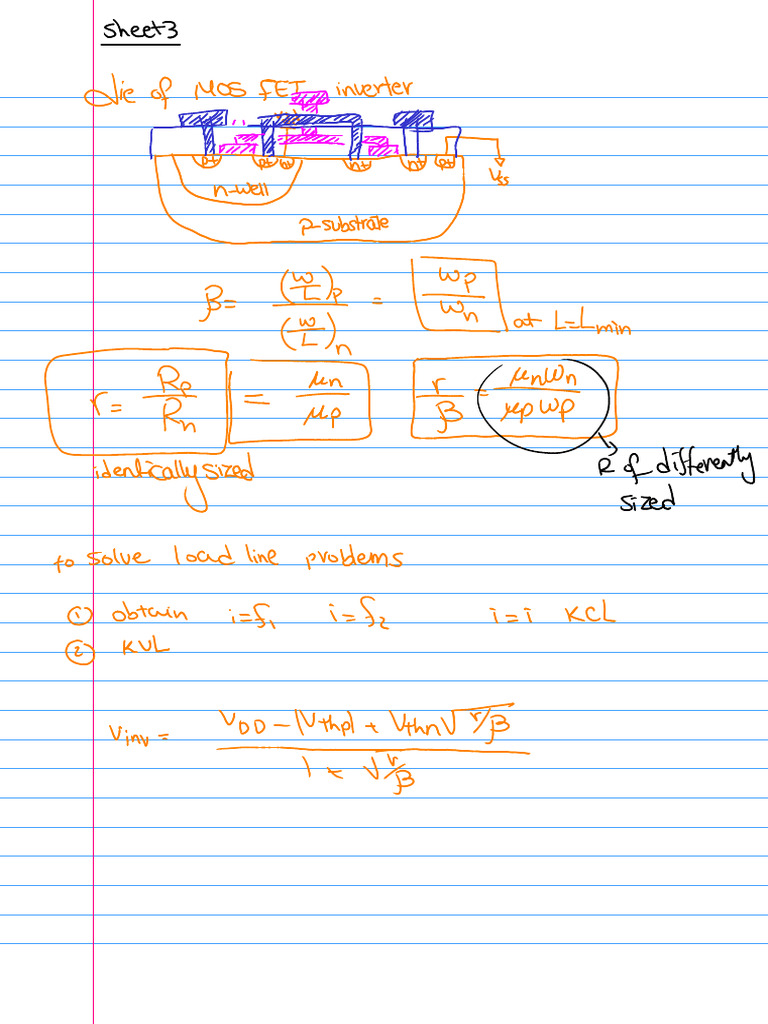 sheet3
Die of MOSFET inverter
p+ p+ n+ n+ n+ p+
Vss
n-well
p-substrate
β = (w/L)p / (w/L)n = wp/wn at L=Lmin
r = Rp/Rn = μn/μp   r/β = μnwn/μpwp
identically sized
R of differently
sized
to solve load line problems
① obtain i=f₁ i=f₂ i=i KCL
② KVL
Vinv = (VDD - |Vthp| + Vthn√(r/β)) / (1 + √(r/β))